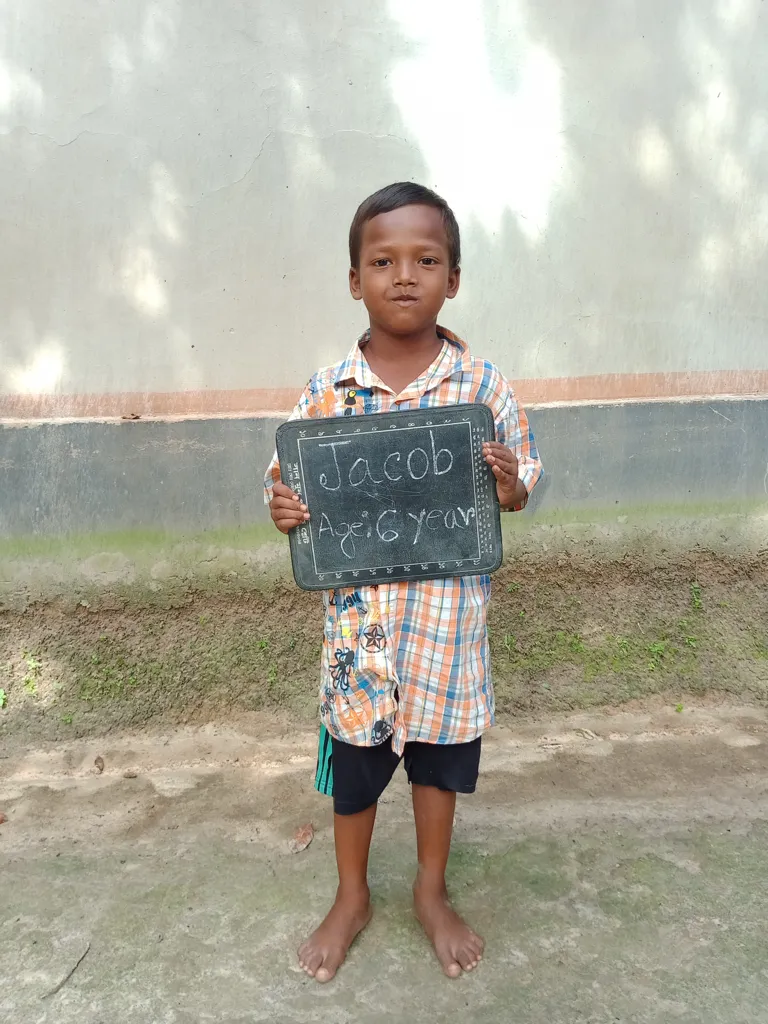 Jacob
Age: 6 year